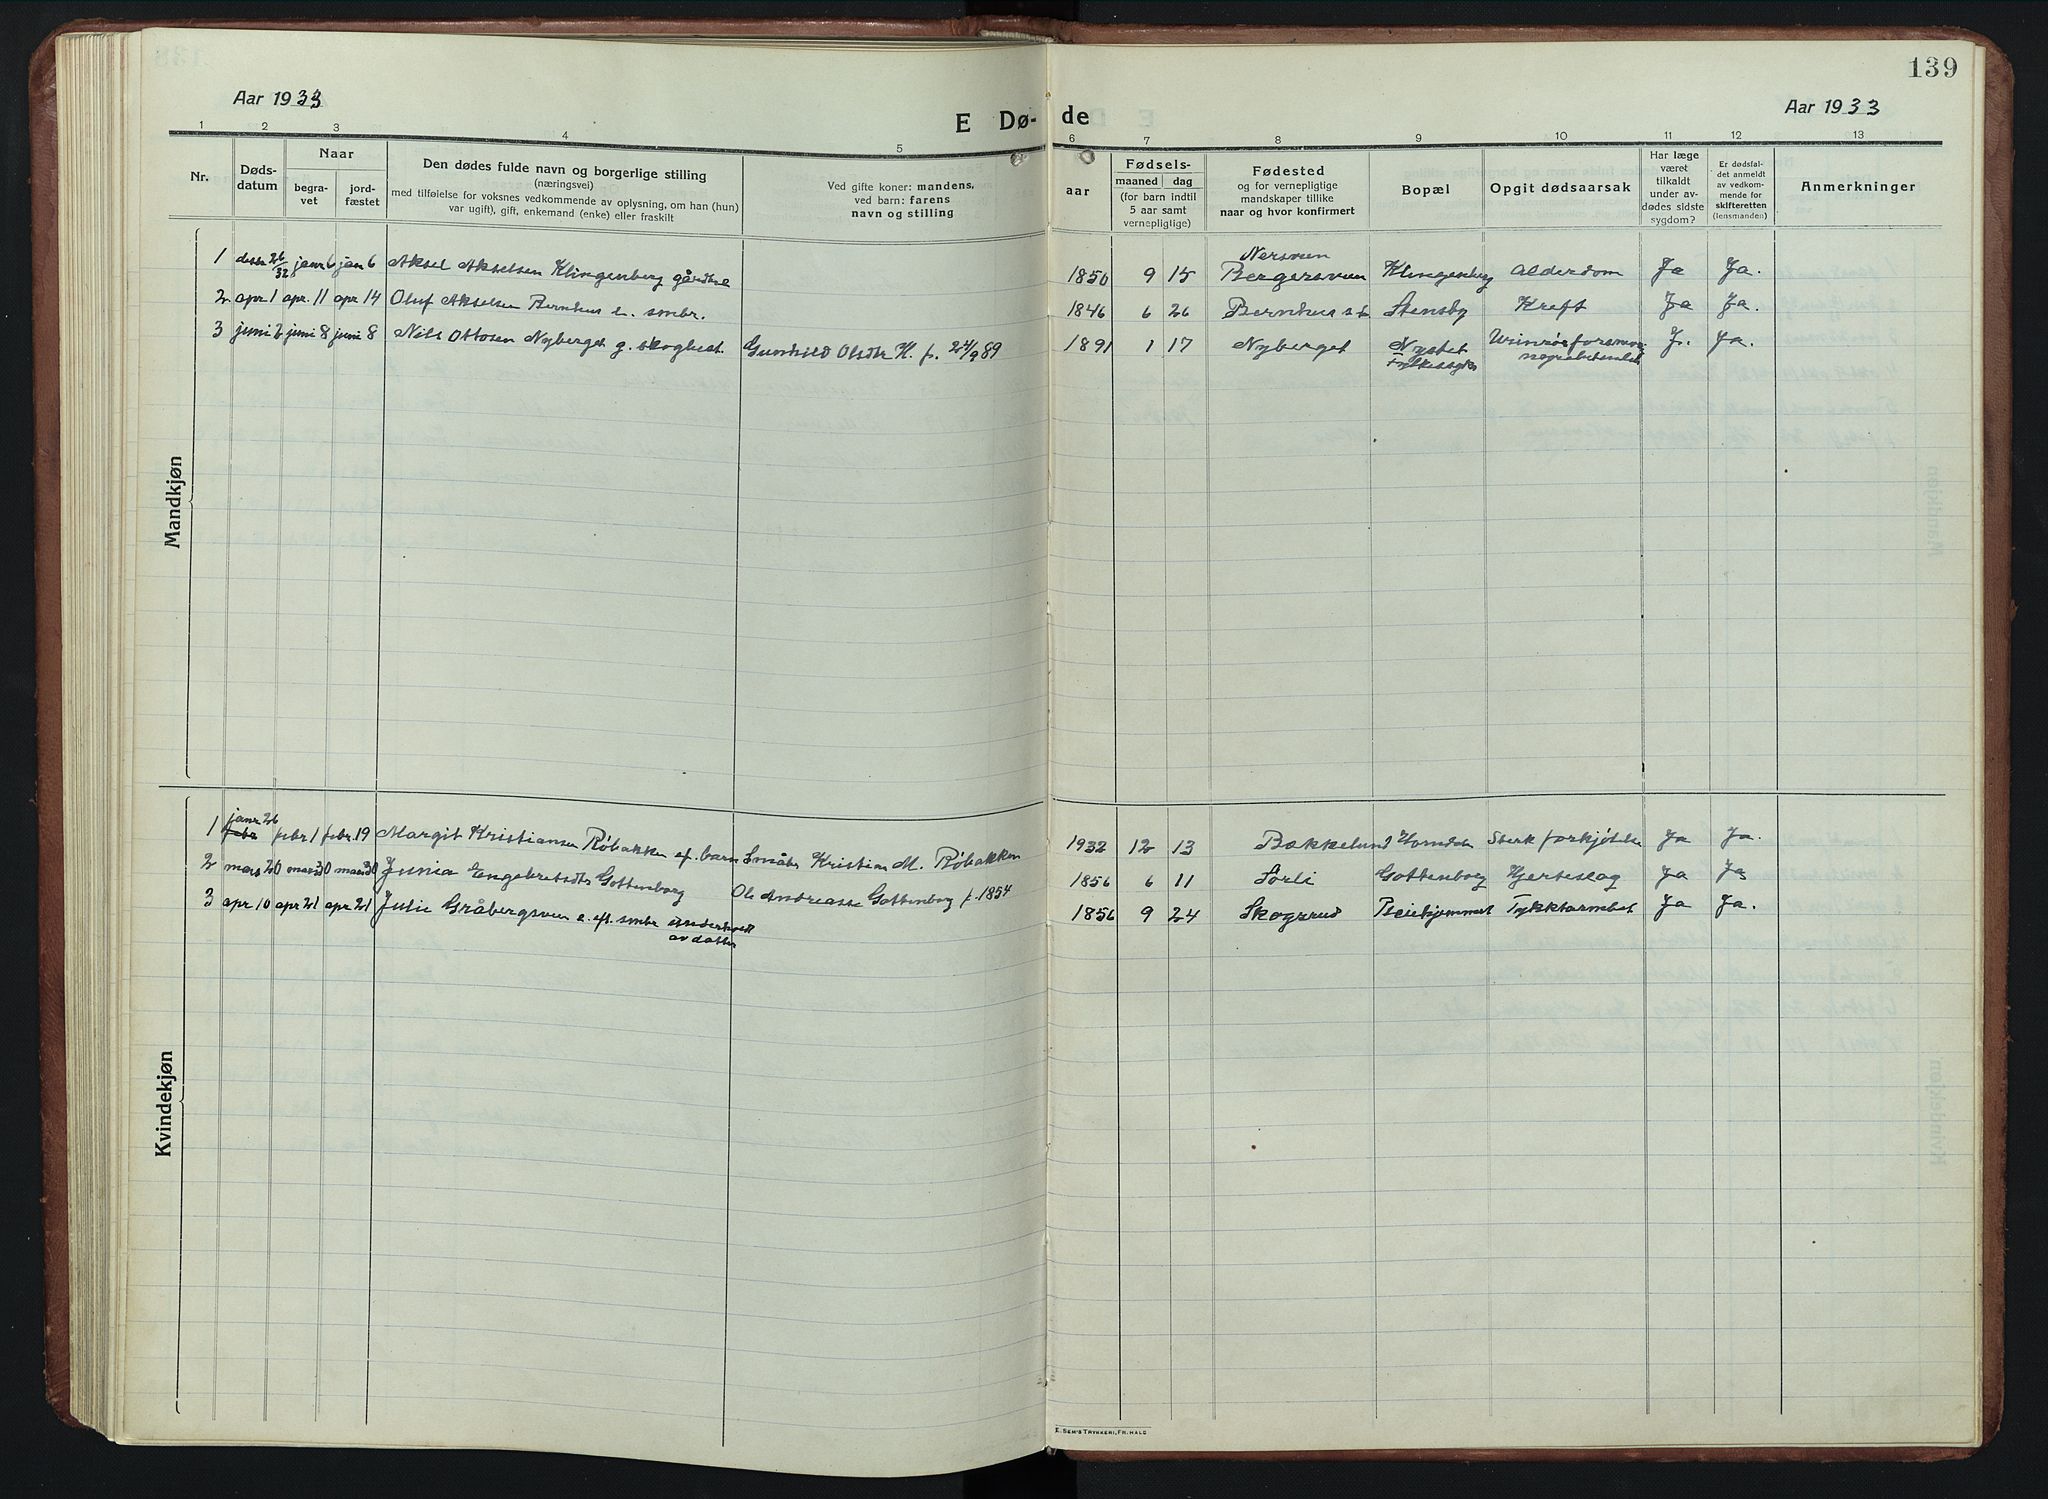 139
Aar 1933
E Dø-
de
Aar 1933
1 2 3 4 5 6 7 8 9 10 11 12 13
Nr.
Døds-
datum
Naar
begra-
vet
jord-
fæstet
Den dødes fulde navn og borgerlige stilling
(næringsvei)
med tilføielse for voksnes vedkommende av oplysning, om han (hun)
var ugift), gift, enkemand (enke) eller fraskilt
Ved gifte koner: mandens,
ved barn: farens
navn og stilling
aar
Fødsels-
maaned dag
(for barn indtil
5 aar samt
vernepligtige)
Fødested
og for vernepligtige
mandskaper tillike
naar og hvor konfirmert
Bopæl
Opgit dødsaarsak
Har læge
været
tilkaldt
under av-
dødes sidste
sygdom?
Er dødsfal-
det anmeldt
av vedkom-
mende for
skifteretten
(lensmanden)
Anmerkninger
Mandkjøn
1 desbr 26/32 janr 6 jan 6 Aksel Akselsen Klingenberg 1850 9 15 Nersveen Bergersveen Klingenberg Alderdom Ja Ja.
2 apr 1 apr. 11 apr 14 Oluf Akselsen Bernhus e. smbr. 1846 6 26 Bernhus Stensby Kreft Ja Ja.
3 juni 2 juni 8 juni 8 Nils Ottosen Nyberget g. Gunhild Olsdtr H. f. 24/9 89 1891 1 17 Nyberget Nystet J. Ja.
Kvindekjøn
1 janr 26 febr febr 1 febr. 19 Margit Kristiansen Røbakken ef. barn Småbr Kristian M. Røbakken 1932 12 13 Bækkelund Homdal Sterk forkjølelse Ja Ja.
2 mars 20 mars 30 mars 30 Junia Engebretsdtr Gottenborg Ole Andreasse Gottenborg f. 1854 1856 6 11 Sørli Gottenborg Hjerteslag Ja Ja
3 apr 10 apr 21 apr 21 Julie Gråbergsveen e. eft. smbr underholdt
av datter 1856 9 24 Skogsrud Pleiehjemmet Ja Ja.
E. SEM'S TRYKKERI, FR. HALD